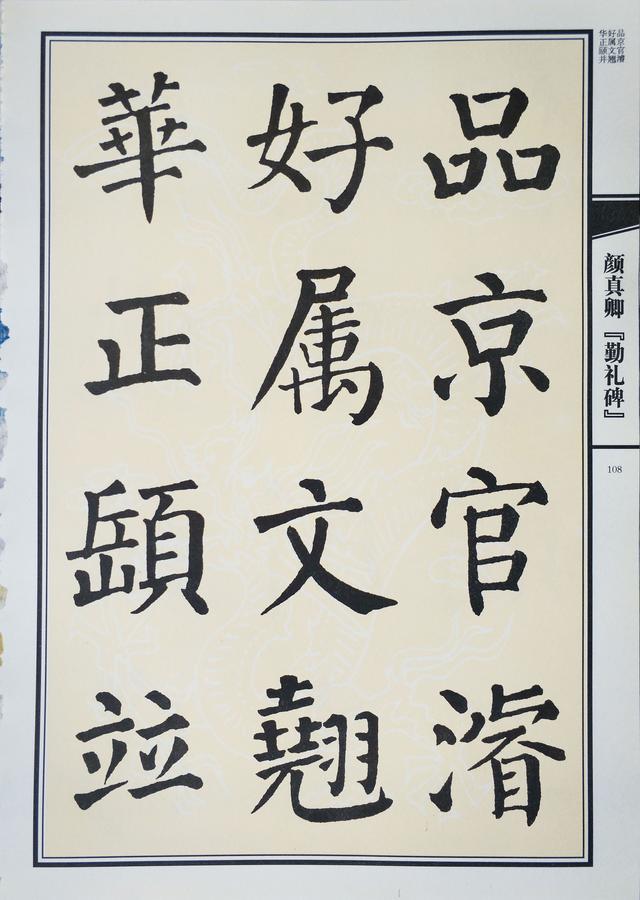 品京官濬
好属文翘
華正頤並
品京官濬
好属文翘
华正颐并
颜真卿『勤礼碑』
108